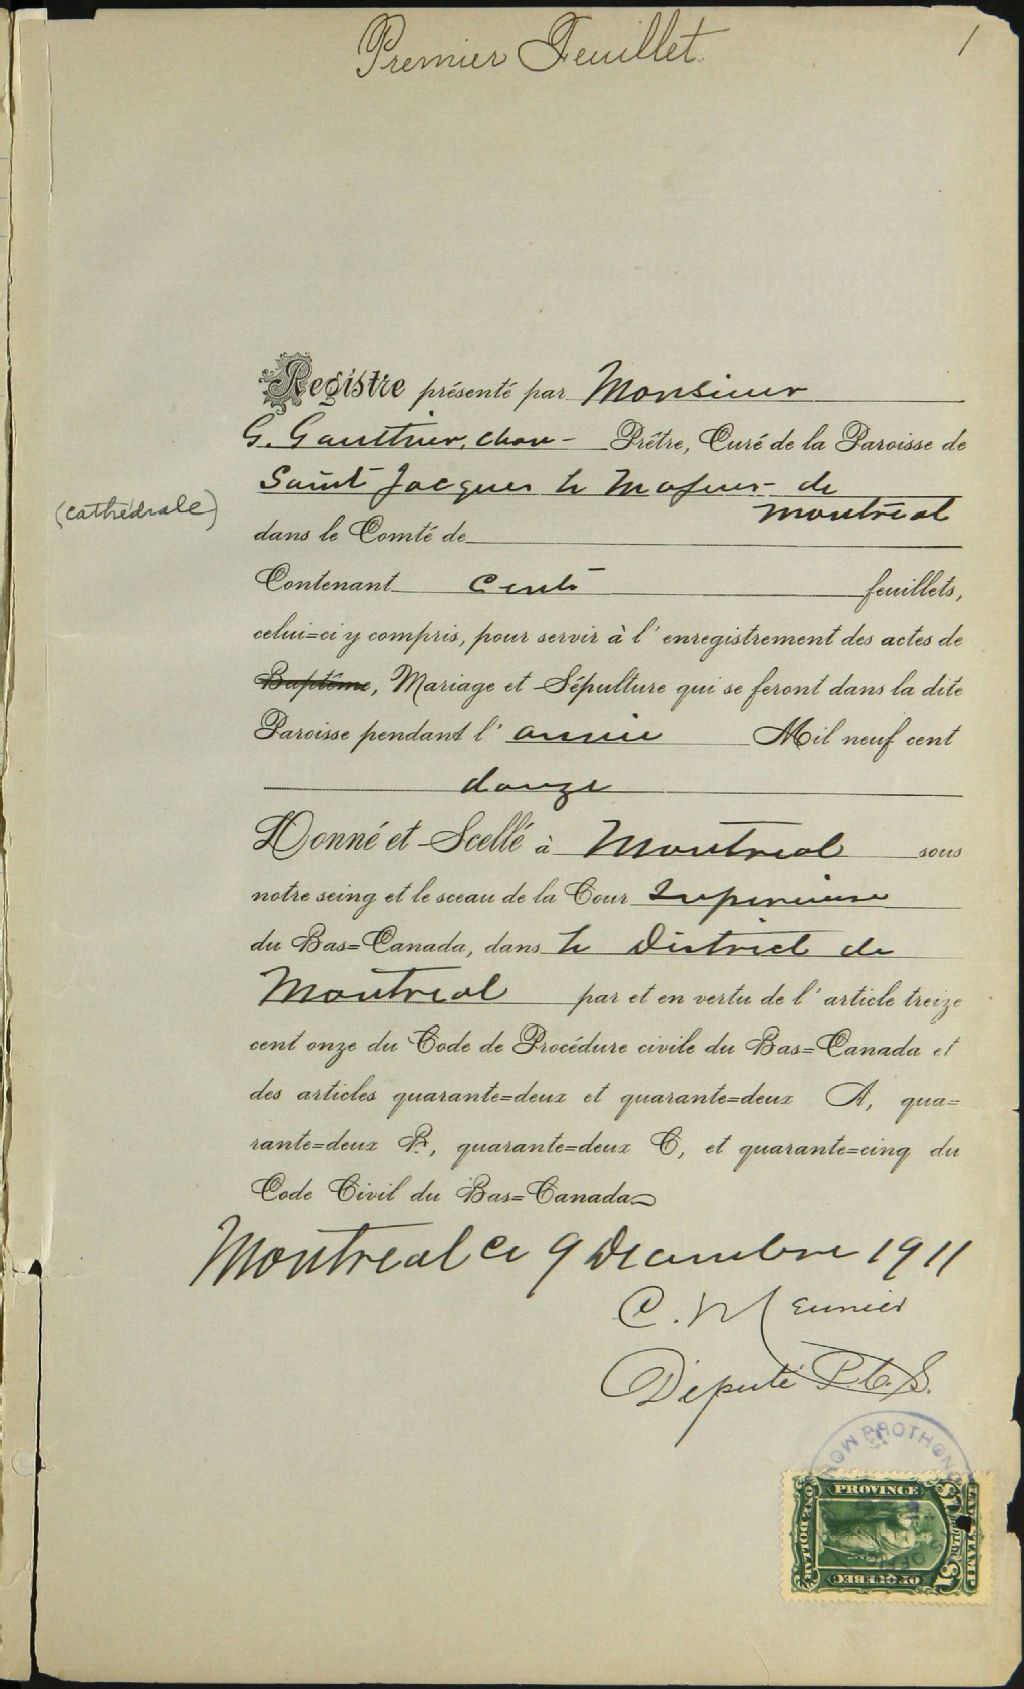 Premier Feuillet.
1
Registre présenté par Monsieur
G. Gauthier, chan- Prêtre, Curé de la Paroisse de
Saint Jacques le Majeur - de
(cathédrale)
Montréal
dans le Comté de
Contenant Cent feuillets,
celui=ci y compris, pour servir à l'enregistrement des actes de
Baptême, Mariage et Sépulture qui se feront dans la dite
Paroisse pendant l'année Mil neuf cent
douze
Donné et Scellé à Montreal sous
notre seing et le sceau de la Cour Superieure
du Bas=Canada, dans le District de
Montreal par et en vertu de l'article treize
cent onze du Code de Procédure civile du Bas=Canada et
des articles quarante=deux et quarante=deux A, qua=
rante=deux B, quarante=deux C, et quarante=cinq du
Code Civil du Bas=Canada
Montreal ce 9 Decembre 1911
C. Meunier
Députe P.C.S.
PROTHONO
PROVINCE
OF QUEBEC
ONE DOLLAR
LAW STAMP
$1
$1